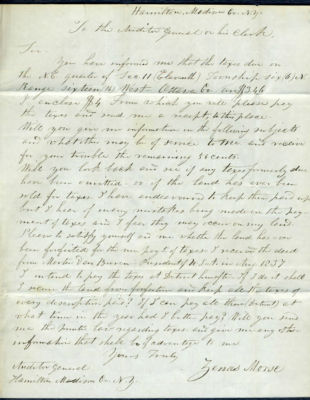 Hamilton, Madison Co. N.Y.
To the Auditor General or his Clerk.
Sir.
You have informed me that the taxes due on
the N.E. quarter of Sec 11 (Eleventh) Township six (6) N
Range sixteen (16) West Ottawa Co. are $3.46
I enclose $4 From which you will please pay
the taxes and send me a receipt, to this place
Will you give me information on the following subjects
and what other may be of service to me and receive
for your trouble the remaining 54 cents.
Will you look back and see if any taxes formerly due
have been omitted or if the land has ever been
sold for taxes. I have endeavoured to keep them paid up
but I hear of many mistakes being made in the pay
ment of taxes and I fear they may occur on my land.
Please to satisfy yourself and me whether the land has ever
been forfeited for the non payt of taxes I received the deed
from Martin Van Buren President U.S. in 1837
I intend to pay the taxes at Detroit hereafter If I do it shall
I save the land from forfeiture and keep all the taxes of
every description paid? If I can pay all there (Detroit) at
what time in the year had I better pay? Will you send
me the printed law regarding taxes and give me any other
information that shall be of advantage to me
Yours Truly
Zenas Morse
Auditor General
Hamilton Madison Co. N.Y.